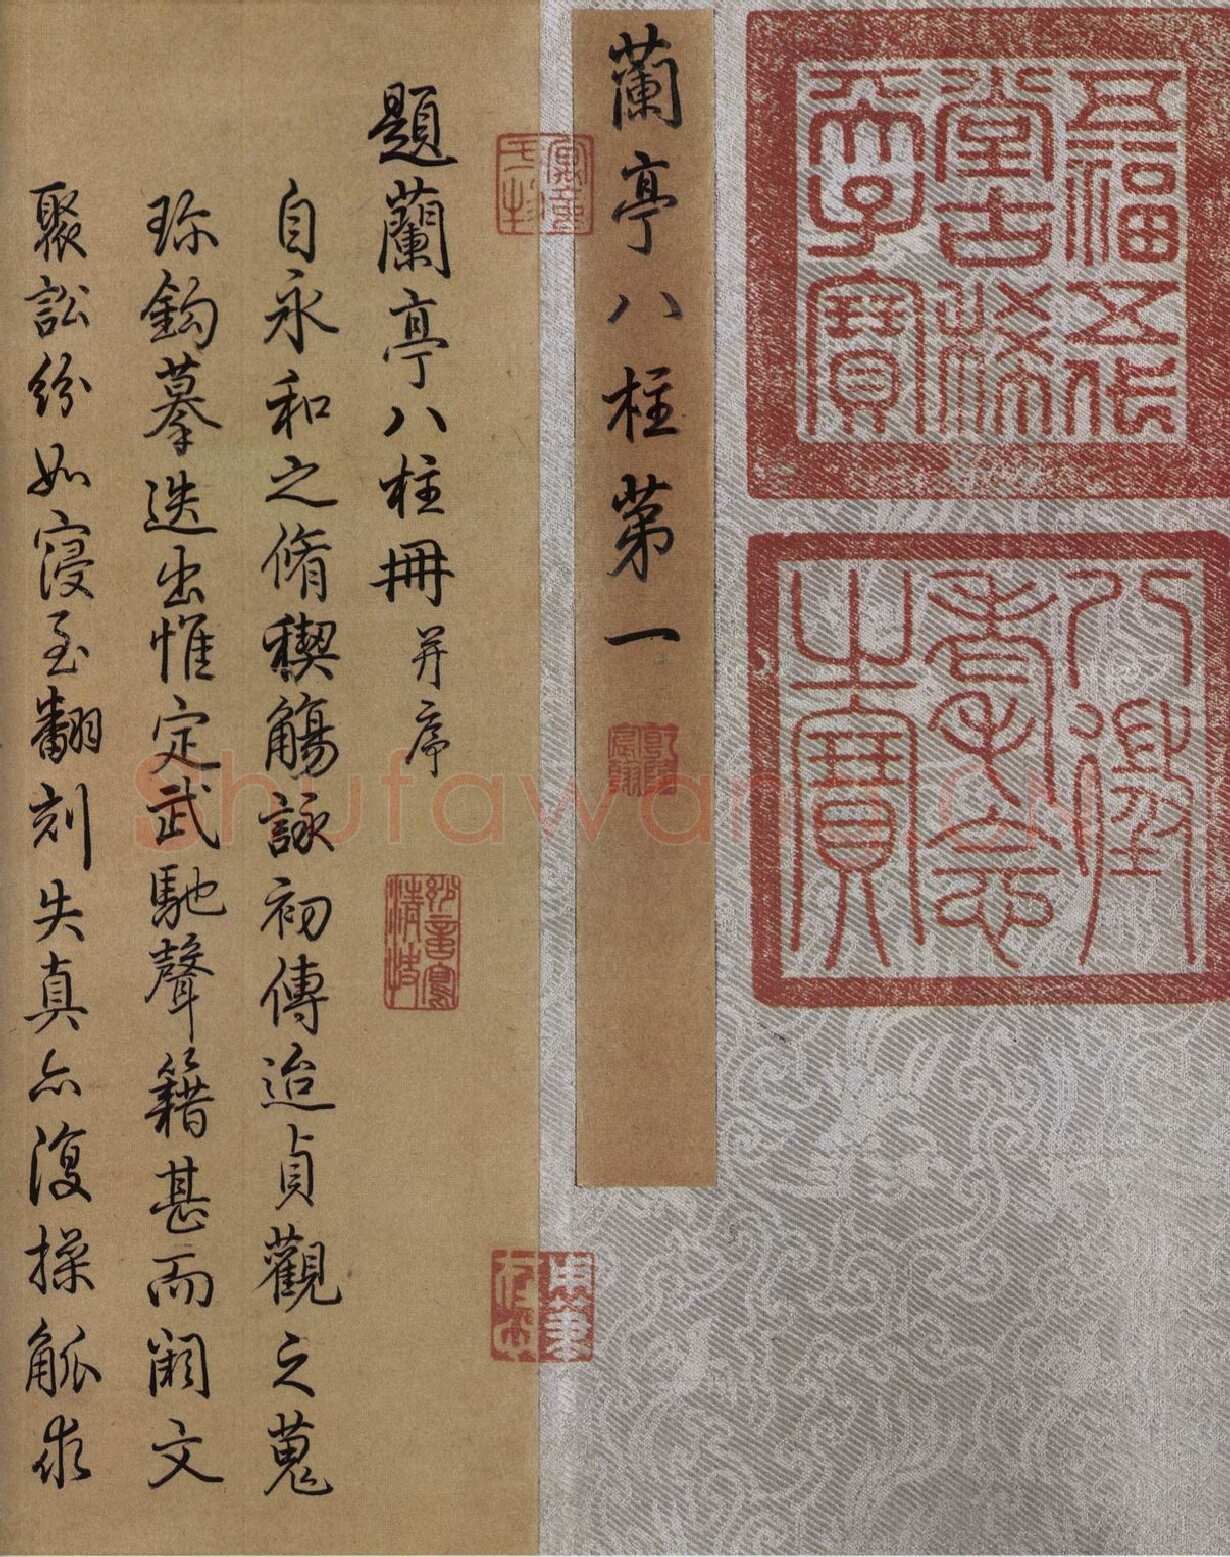 五福五代
堂古稀
天子寶
八徵
耄念
之寶
蘭亭八柱第一
題蘭亭八柱冊 并序
自永和之脩稧觴詠初傳迨貞觀之蒐
珎鈎摹迭出惟定武馳聲籍甚而闕文
聚訟紛如寖至翻刻失真亦復操觚求
妙意寫
清快
用筆
在心